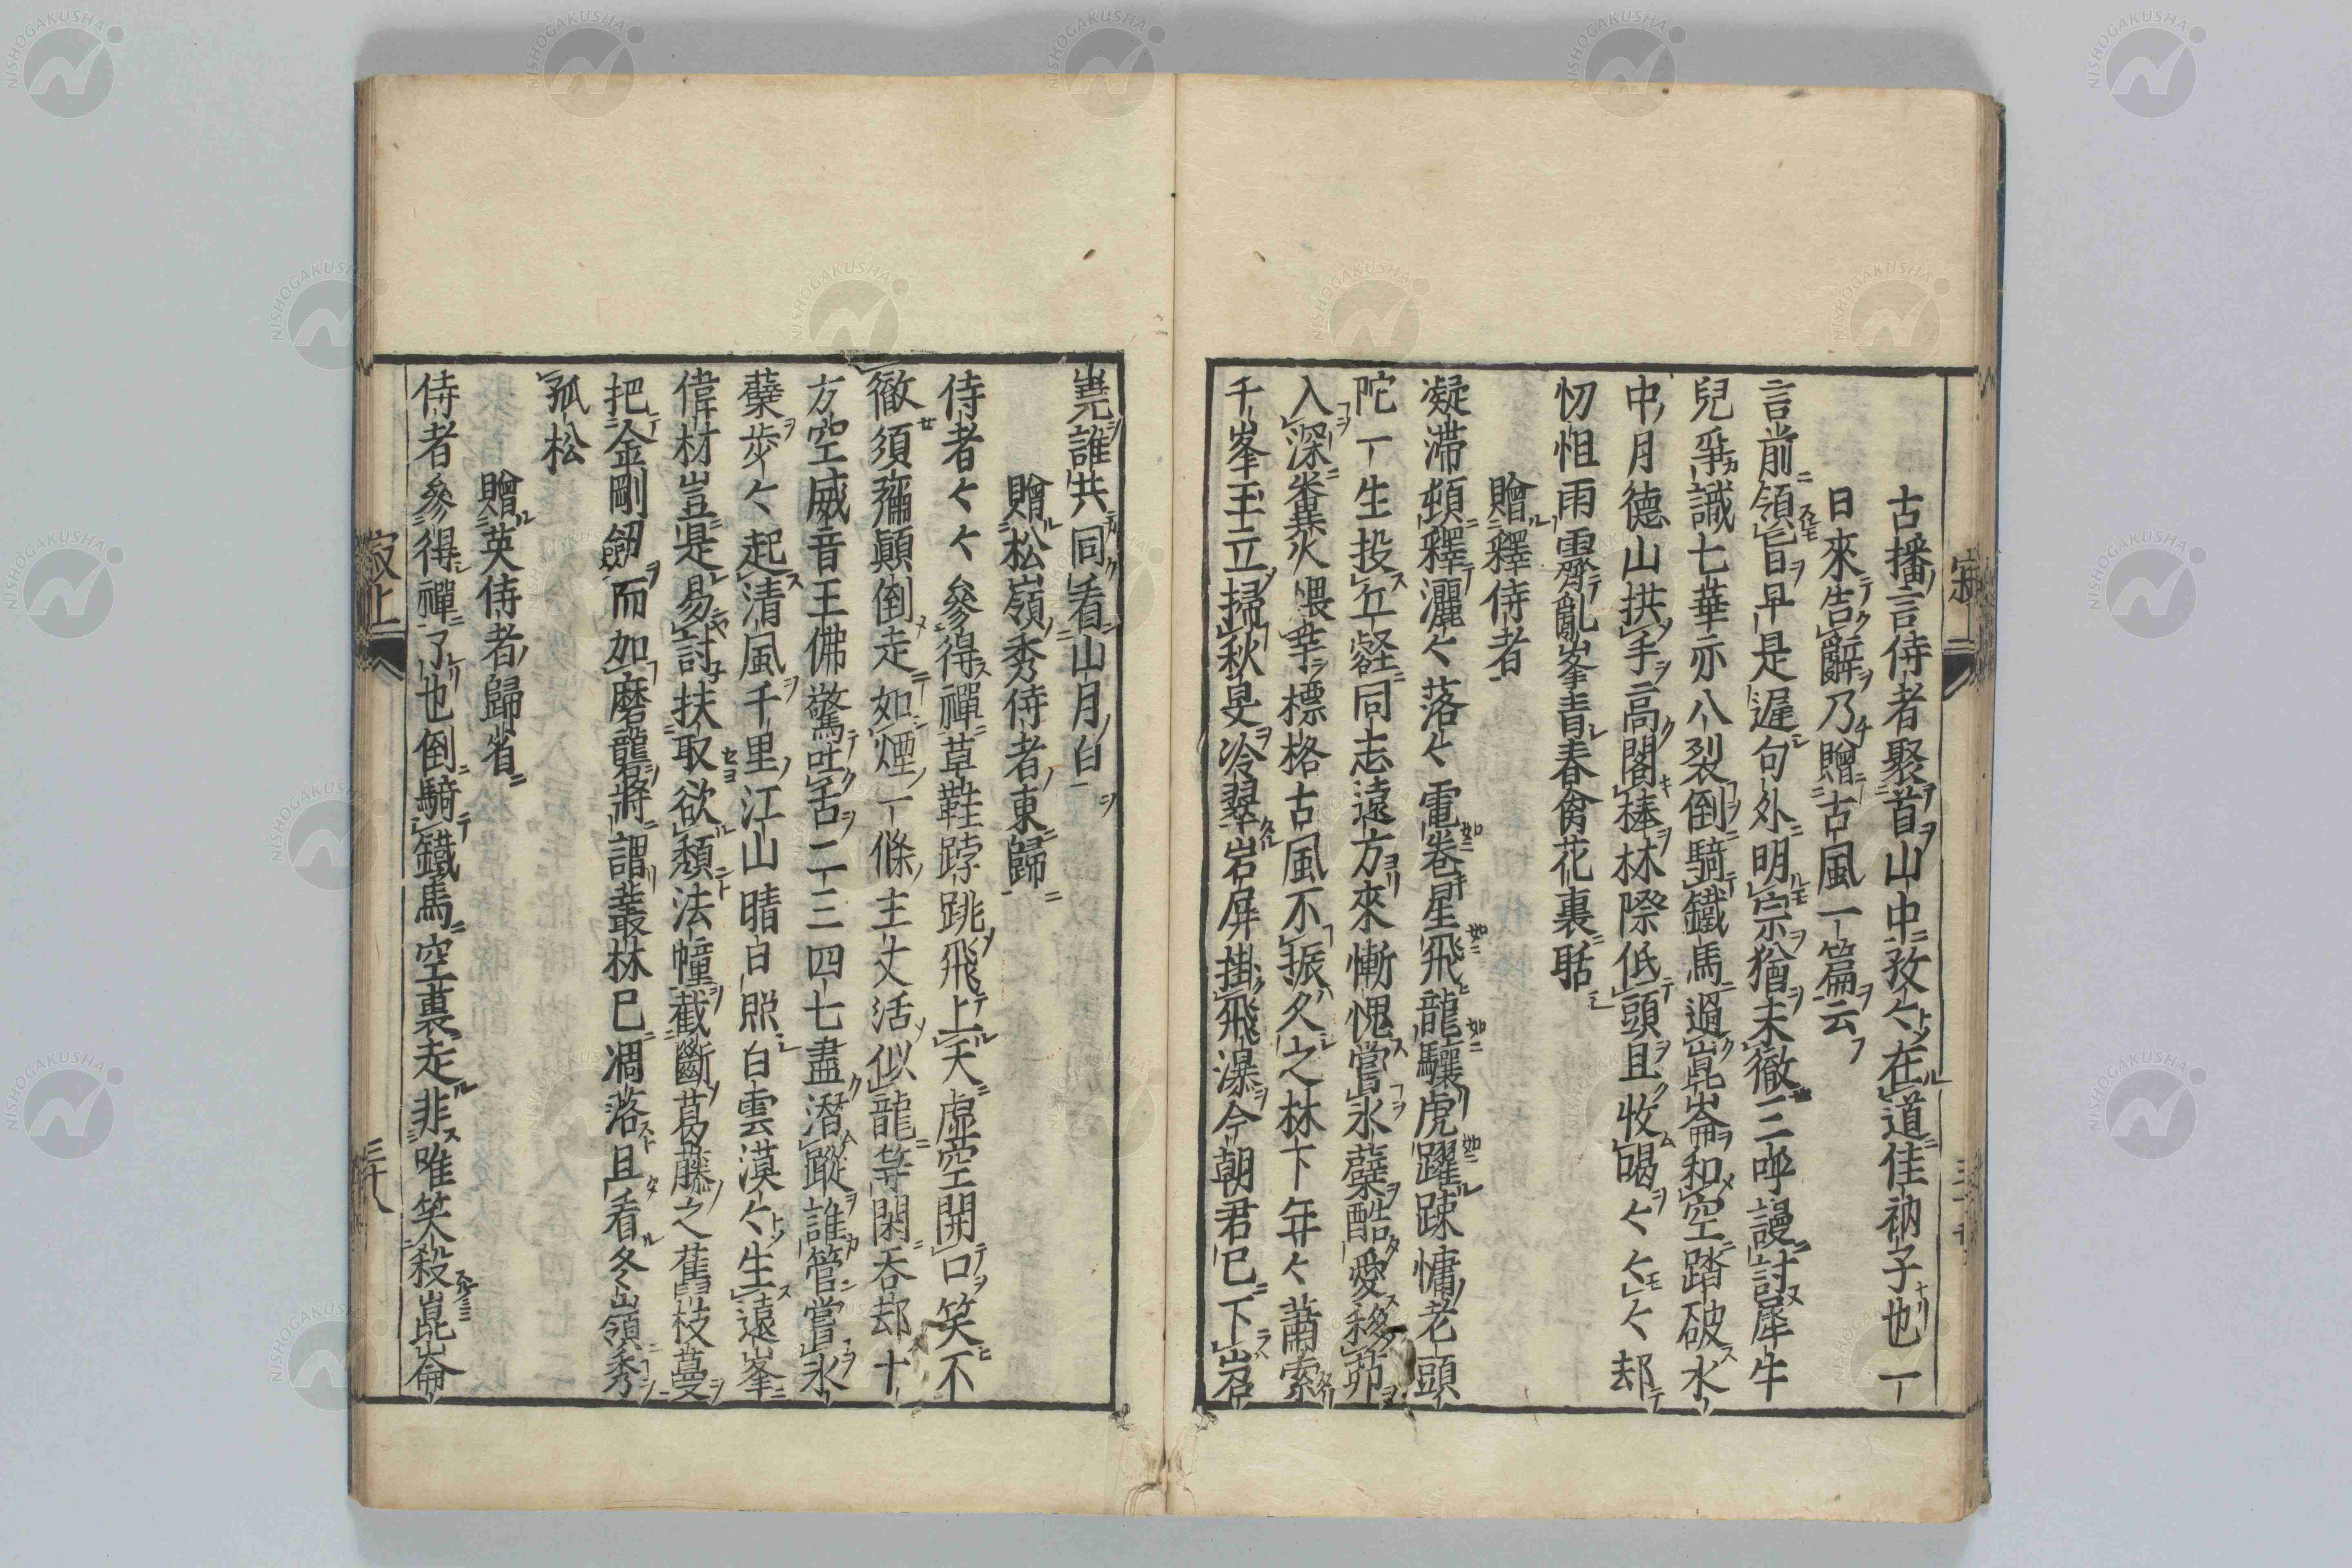 古播言侍者聚首山中孜〻在道佳衲子也一
日來告辭乃贈古風一篇云
言前領旨早是遲句外明宗猶未徹三呼謾討犀牛
兒爭識七華亦八裂倒騎鐵馬過崑崙和空踏破水
中月德山拱手高閣棒林際低頭且收喝〻〻〻却
忉怛雨霽亂峯青春禽花裏聒
贈釋侍者
凝滯頓釋灑〻落〻電卷星飛龍驤虎躍踈慵老頭
陀一生投丘壑同志遠方來慚愧嘗氷蘗酷愛移茆
入深糞火煨芋標格古風不振久之林下年〻蕭索
千峯玉立掃秋旻冷翠岩屏掛飛瀑今朝君已下岩
嶤誰共同看山月白
贈松嶺秀侍者東歸
侍者〻〻參得禪草鞋𨁝跳飛上天虛空開口笑不
徹須彌顛倒走如煙一條主丈活似龍等閑吞却十
方空威音王佛驚吐舌二三四七盡潛蹤誰管嘗氷
蘗步〻起清風千里江山晴日照白雲漠〻生遠峯
偉材豈是易討扶取欲頽法幢截斷葛藤之舊枝蔓
把金剛劒而加磨礲將謂叢林已凋落且看冬嶺秀
孤松
贈英侍者歸省
侍者參得禪了也倒騎鐵馬空裏走非唯笑殺崑崙
寂上
三十八